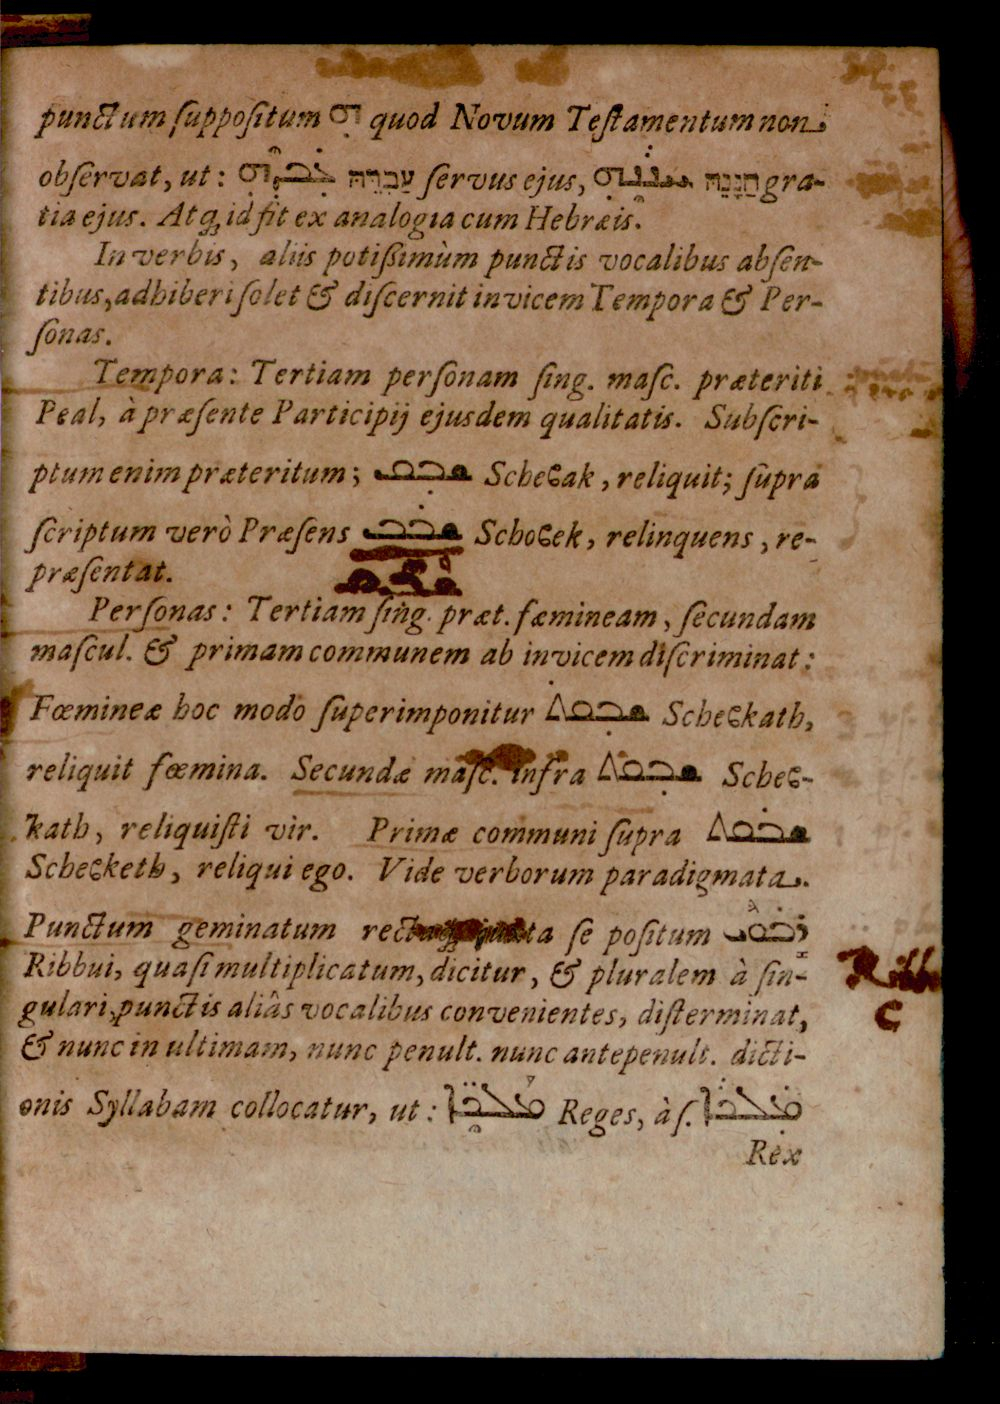 punctum ſuppoſitum ܗ݁ quod Novum Teſtamentum non
obſervat, ut: ܥܒܕܗ עַבְדֵהּ ſervus ejus, ܚܢܢܗ חַנָנֵהּ gra-
tia ejus. Atq; id fit ex analogia cum Hebræis.
In verbis, aliis potiſſimùm punctis vocalibus abſen-
tibus, adhiberi ſolet & diſcernit invicem Tempora & Per-
ſonas.
Tempora: Tertiam perſonam ſing. maſc. præteriti
Peal, à præſente Participij ejusdem qualitatis. Subſcri-
ptum enim præteritum; ܫܒܩ Scheבak, reliquit; ſupra
ſcriptum verò Præſens ܫܒܩ Schoבek, relinquens, re-
præſentat.
Perſonas: Tertiam ſing. præt. fæmineam, ſecundam
maſcul. & primam communem ab invicem diſcriminat:
Fœmineæ hoc modo ſuperimponitur ܫܒܩܬ Scheבkath,
reliquit fœmina. Secundæ maſc. infra ܫܒܩܬ Scheב-
kath, reliquiſti vir. Primæ communi ſupra ܫܒܩܬ
Scheבketh, reliqui ego. Vide verborum paradigmata.
Punctum geminatum ſe poſitum ܪܒܘܝ
Ribbui, quaſi multiplicatum, dicitur, & pluralem à ſin-
gulari, punctis aliâs vocalibus convenientes, diſterminat,
& nunc in ultimam, nunc penult. nunc antepenult. dicti-
onis Syllabam collocatur, ut: ܡܠܟ̈ܐ Reges, à ſ. ܡܠܟܐ
Rex
Ribb
C